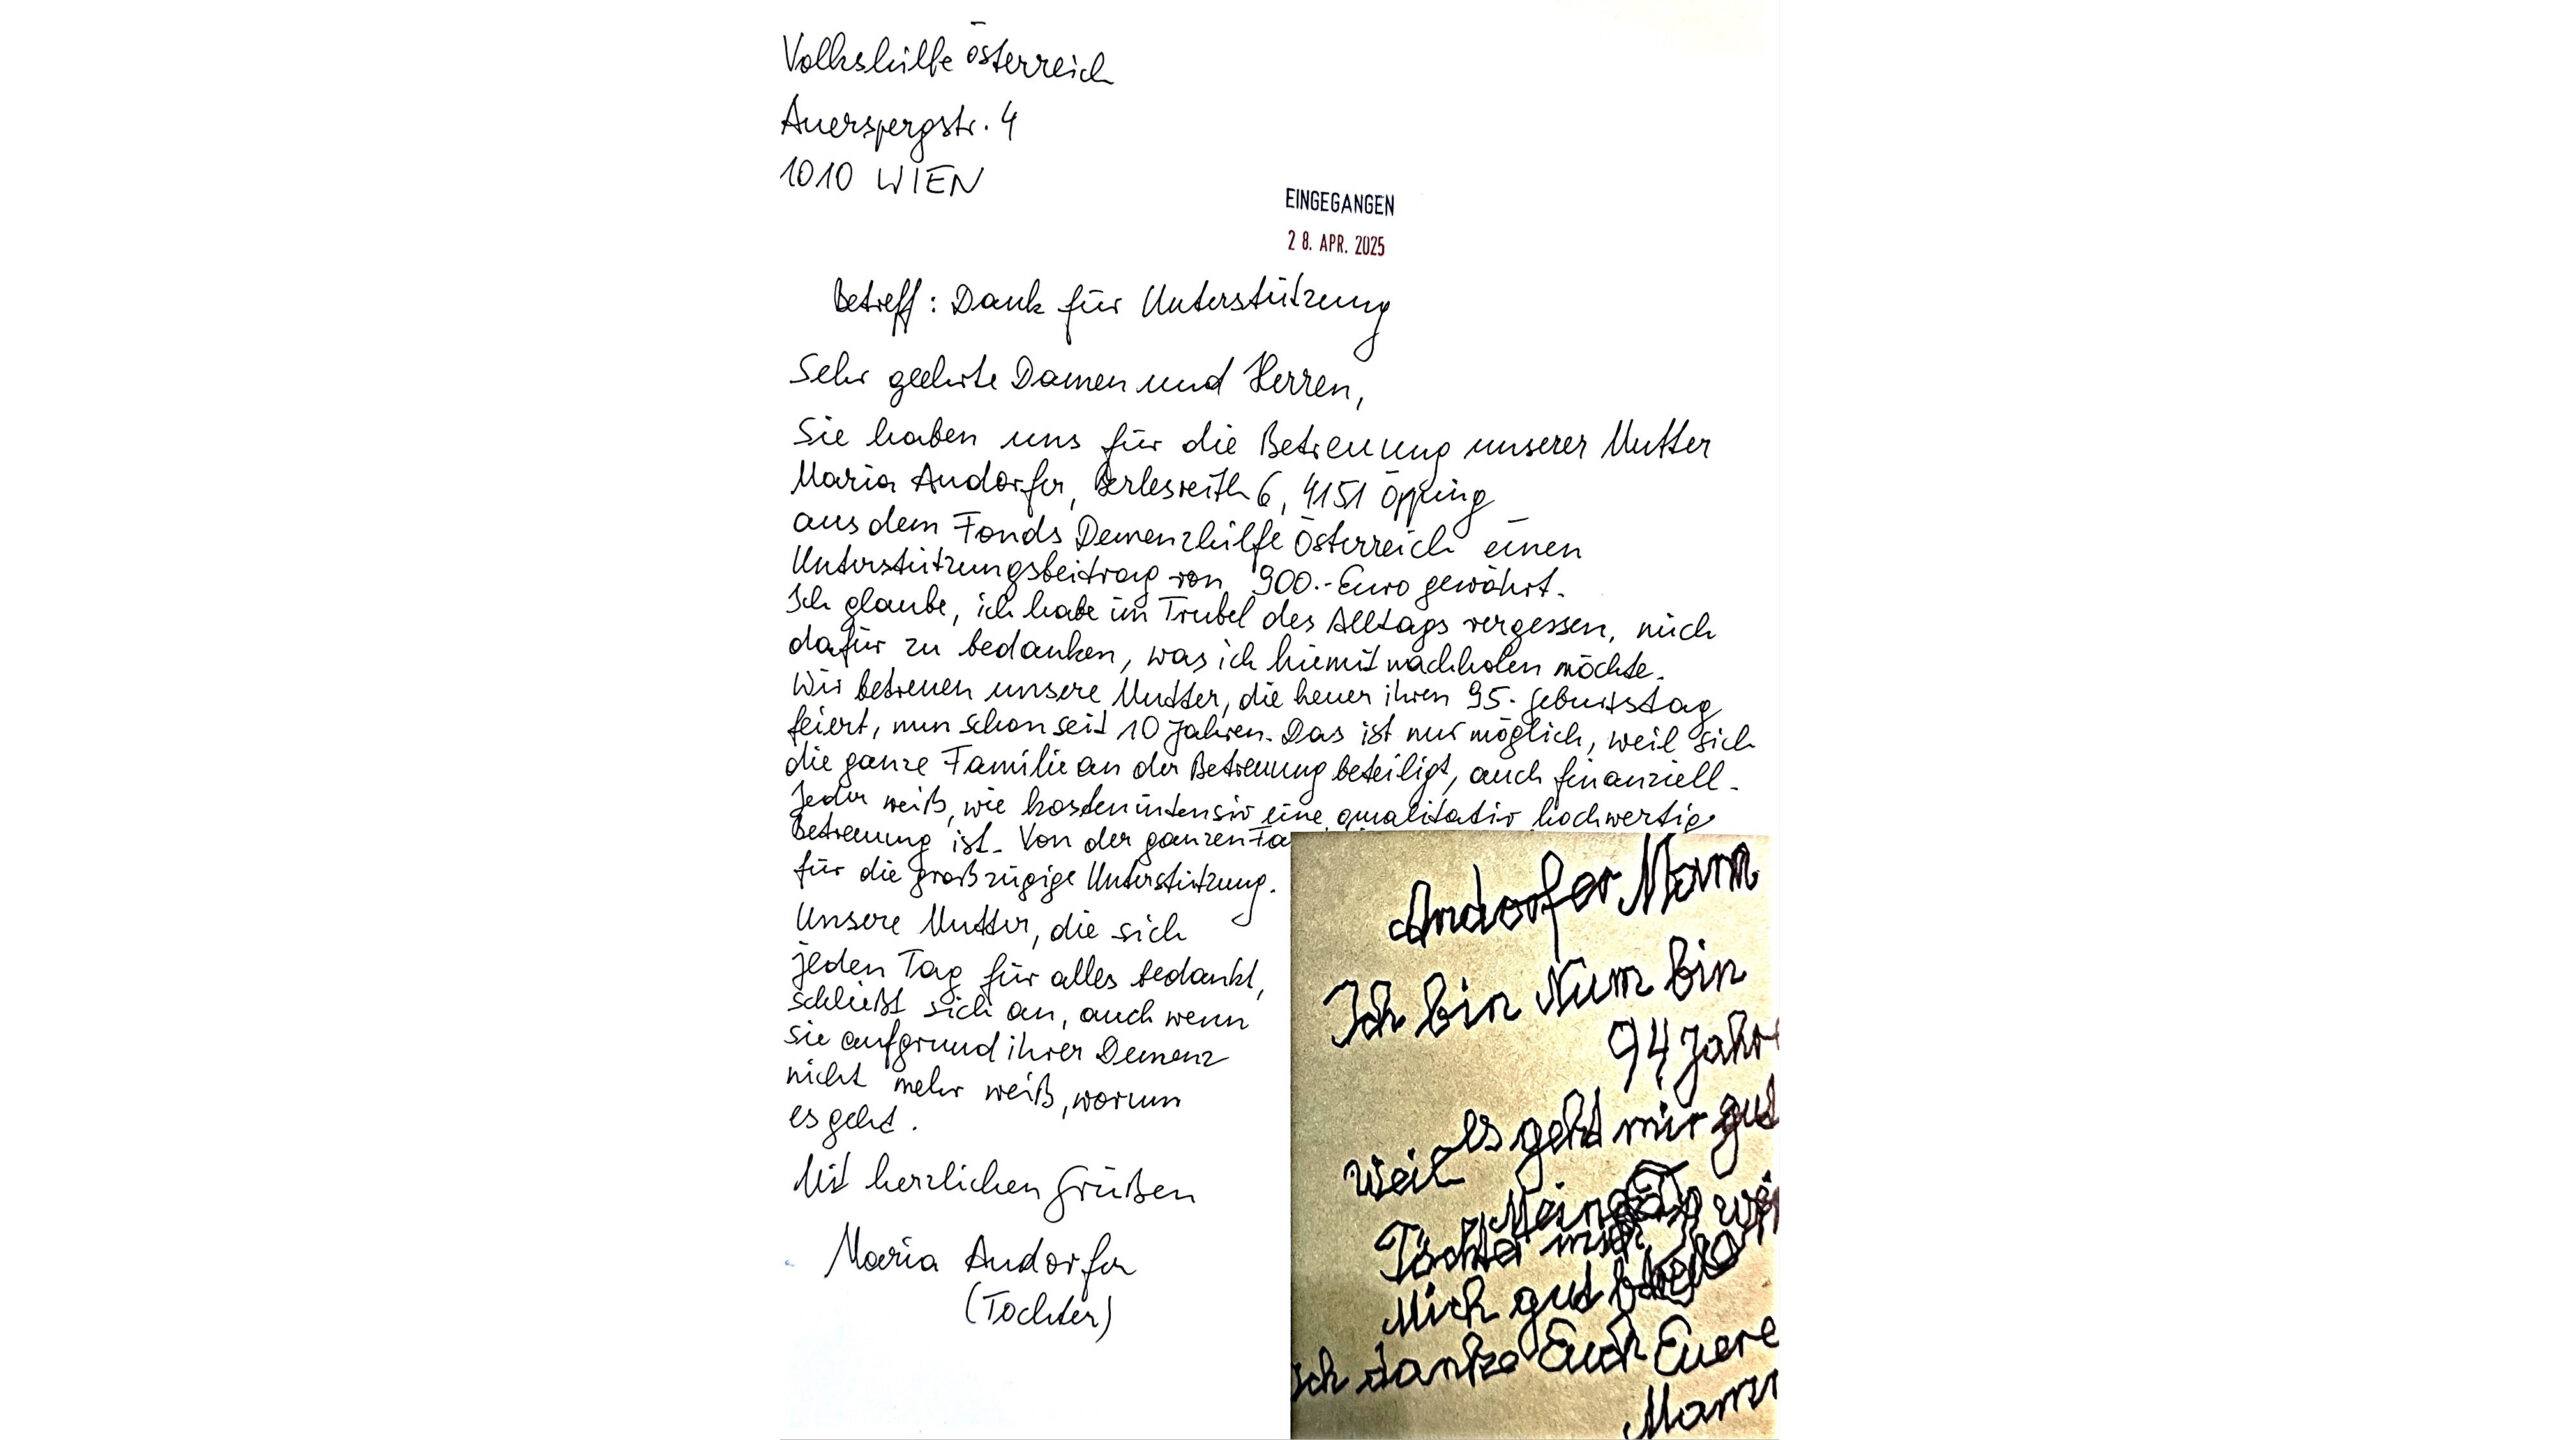 Volkshilfe Österreich
Auerspergstr. 4
1010 WIEN
EINGEGANGEN
28. APR. 2025
Betreff: Dank für Unterstützung
Sehr geehrte Damen und Herren,
Sie haben uns für die Betreuung unserer Mutter
Maria Andorfer, Perlesreith 6, 4151 Öpping
aus dem Fonds Demenzhilfe Österreich einen
Unterstützungsbeitrag von 900.- Euro gewährt.
Ich glaube, ich habe im Trubel des Alltags vergessen, mich
dafür zu bedanken, was ich hiemit nachholen möchte.
Wir betreuen unsere Mutter, die heuer ihren 95. Geburtstag
feiert, nun schon seit 10 Jahren. Das ist nur möglich, weil sich
die ganze Familie an der Betreuung beteiligt, auch finanziell.
Jeder weiß, wie kostenintensiv eine qualitativ hochwertige
Betreuung ist. Von der ganzen Fa
für die großzügige Unterstützung.
Unsere Mutter, die sich
jeden Tag für alles bedankt,
schließt sich an, auch wenn
sie aufgrund ihrer Demenz
nicht mehr weiß, worum
es geht.
Mit herzlichen Grüßen
Maria Andorfer
(Tochter)
Andorfer Mam
Ich bin Num bin
94 Jahr
es geht mir gut
Weil
Töchter
Mich gut
Ich danke Euch Euere
Mam